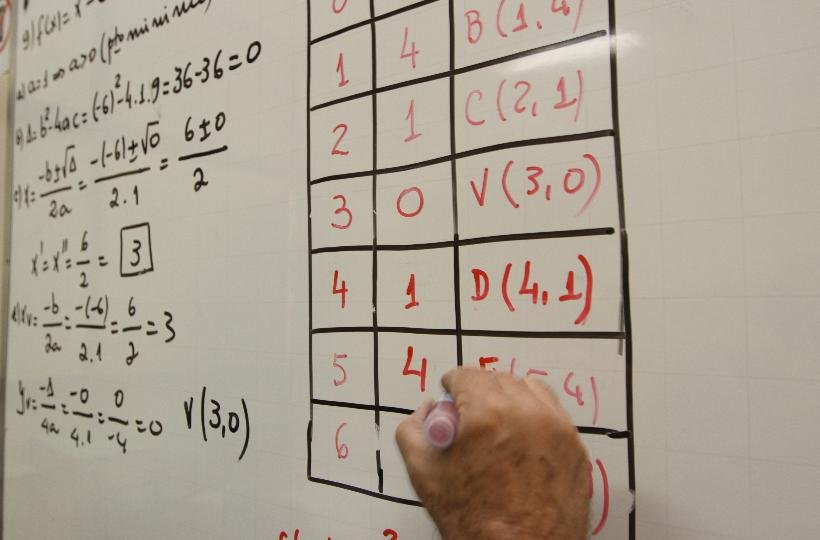 g) f(x) = x
a) a=1 ⇒ a>0 (pto mínimo)
b) Δ= b²-4ac = (-6)²-4.1.9 = 36-36 = 0
c) x= -b±√Δ/2a = -(-6)±√0/2.1 = 6±0/2
x'=x''= 6/2 = 3
d) xv= -b/2a = -(-6)/2.1 = 6/2 = 3
yv= -Δ/4a = -0/4.1 = 0/-4 = 0 V(3,0)
0
1 4 B(1,4)
2 1 C(2,1)
3 0 V(3,0)
4 1 D(4,1)
5 4 4)
6 )